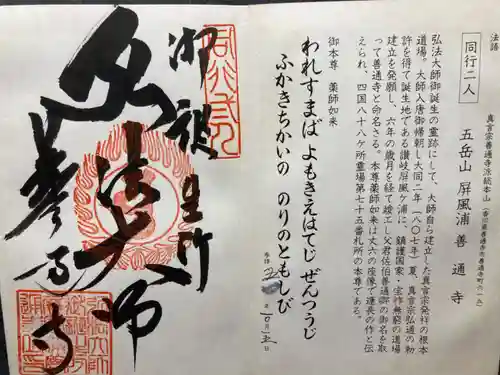 法話
同行二人
真言宗善通寺派総本山
五岳山 屏風浦 善通寺
弘法大師御誕生の霊跡にして、大師自ら建立した真言宗発祥の根本
道場。大師入唐御帰朝し大同二年(八〇七年)夏、真言宗弘通の勅
許を得て誕生地である讃岐屏風ケ浦に、鎮護国家・宝祚無窮の道場
建立を発願し、六年の歳月を経て竣工し父君佐伯善通卿の御名を取
って善通寺と命名さる。本尊薬師如来は丈六の座像で運長の作と伝
えられ、四国八十八ケ所霊場第七十五番札所の本尊である。
御本尊 薬師如来
われすまば よもきえはてじ ぜんつうじ
ふかきちかいの のりのともしび
奉拝
年 10月 日
御誕生所
弘法大師
善通寺